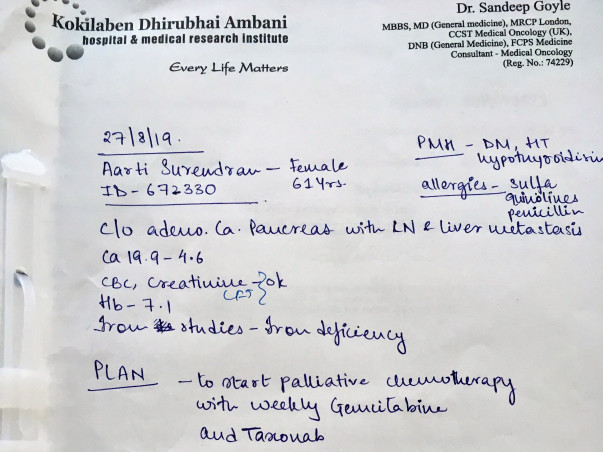 Kokilaben Dhirubhai Ambani
hospital & medical research institute
Every Life Matters
Dr. Sandeep Goyle
MBBS, MD (General medicine), MRCP London,
CCST Medical Oncology (UK),
DNB (General Medicine), FCPS Medicine
Consultant - Medical Oncology
(Reg. No.: 74229)
27/8/19.
Aarti Surendran - Female
61yrs.
ID - 672330
PMH - DM, HT
hypothyroidism
allergies - sulfa
quinolines
penicillin
c/o adeno. Ca. Pancreas with LN & liver metastasis
Ca 19.9 - 4.6
CBC, Creatinine - ok
LFT
Hb - 7.1
Iron studies - Iron deficiency
PLAN - to start palliative chemotherapy
with weekly Gemcitabine
and Taxonab